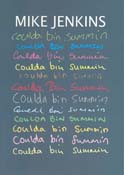 MIKE JENKINS
Coulda bin summin
Coulda bin summin
Coulda bin Summin
Coulda bin summin
Coulda bin Summin
Coulda bin Summin
Coulda bin Summin
Coulda bin summin
Coulda bin summin
Coulda bin Summin
Coulda bin summin